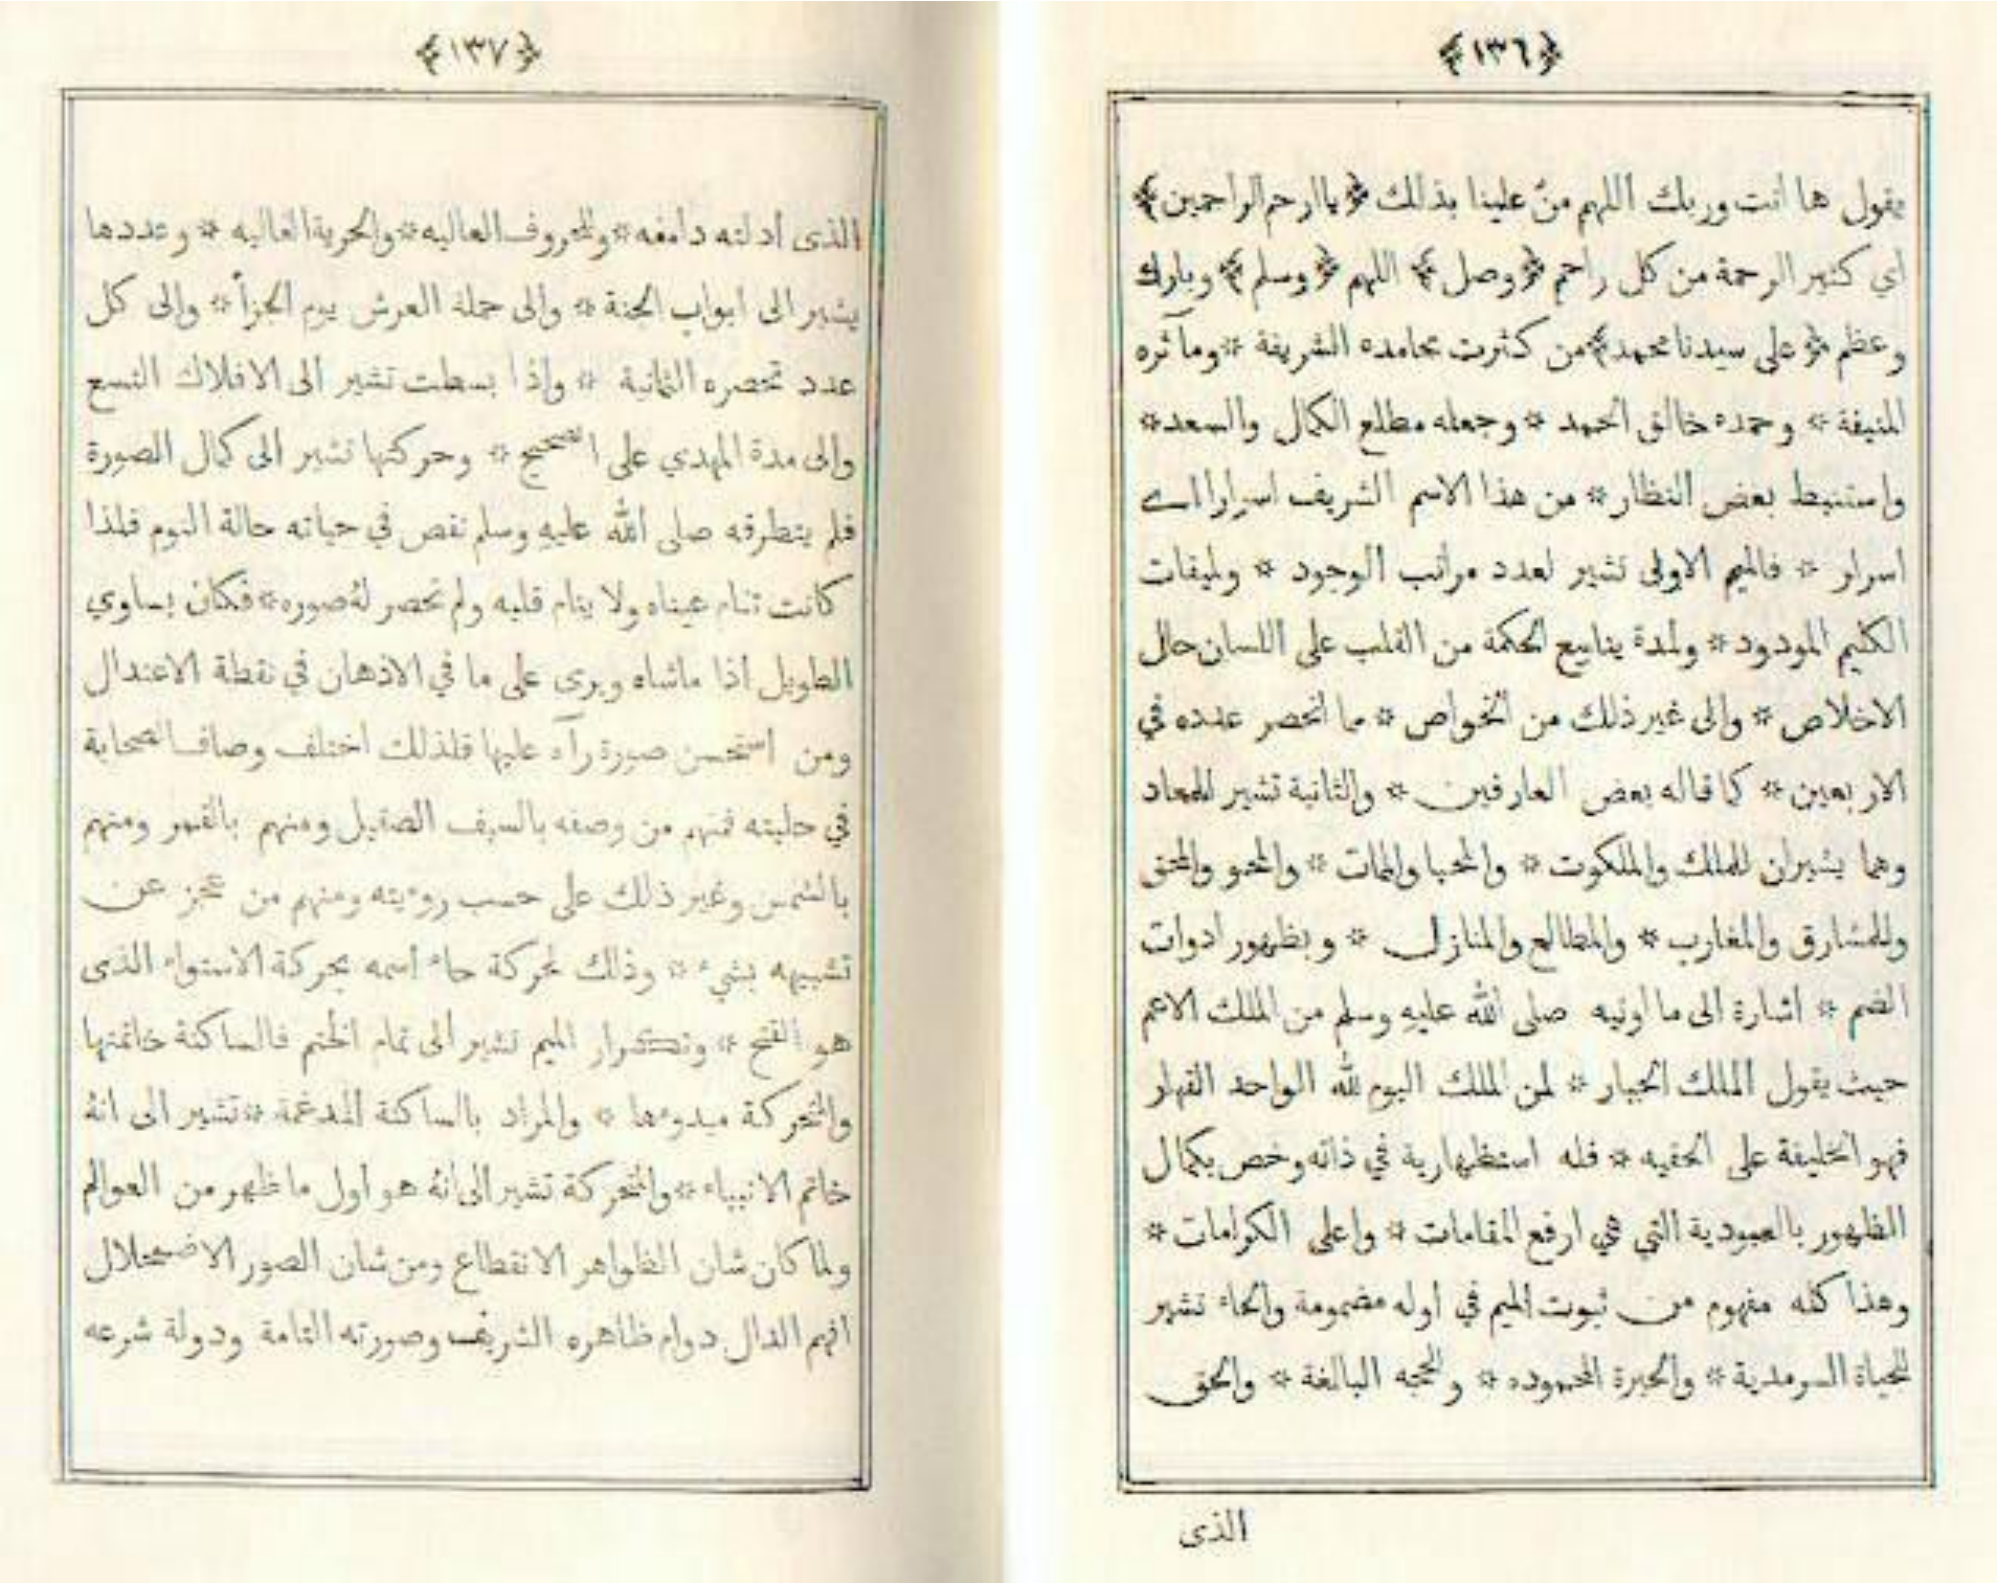 ﴿١٣٦﴾
يقول ها انت وربك اللهم منّ علينا بذلك ﴿ياارحم الراحمين﴾
اي كثير الرحمة من كل راحم ﴿وصل﴾ اللهم ﴿وسلم﴾ وبارك
وعظم ﴿على سيدنا محمد﴾ من كثرت محامده الشريفة * ومآثره
المنيفة * وحمده خالق الحمد * وجعله مطلع الكمال والسعد *
واستنبط بعض النظار * من هذا الاسم الشريف اسرارا اے
اسرار * فالميم الاولى تشير لعدد مراتب الوجود * ولميقات
الكليم المودود * ولمدة ينابيع الحكمة من القلب على اللسان حال
الاخلاص * والى غير ذلك من الخواص * ما انحصر عنده في
الاربعين * كما قاله بعض العارفين * والثانية تشير للمعاد
وهما يشيران للملك والملكوت * والمحيا والممات * والمحو والمحق
وللمشارق والمغارب * والمطالع والمنازل * وبظهور ادوات
الضم * اشارة الى ما اوتيه صلى الله عليهِ وسلم من الملك الاعم
حيث يقول الملك الجبار * لمن الملك اليوم لله الواحد القهار
فهو الخليفة على الحقيه * فله استظهارية في ذاته وخص بكمال
الظهور بالعبودية التي هي ارفع المقامات * واعلى الكرامات *
وهذا كله مفهوم من ثبوت الميم في اوله مضمومة والحاء تشير
للحياة السرمدية * والحيرة المحموده * وللحجه البالغة * والحق
الذى
﴿١٣٧﴾
الذى أدلته دامغه * وللحروف العاليه * والحرية الغاليه * وعددها
يشير الى ابواب الجنة * والى حملة العرش يوم الجزأ * والى كل
عدد تحصره الثمانية * واذا بسطت تشير الى الافلاك التسع
والى مدة المهدي على الصحيح * وحركتها تشير الى كمال الصورة
فلم يتطرقه صلى الله عليهِ وسلم نقص في حياته حالة النوم فلذا
كانت تنام عيناه ولا ينام قلبه ولم تحصر لهُ صوره * فكان يساوي
الطويل اذا ماشاه ويرى على ما في الاذهان في نقطة الاعتدال
ومن استحسن صورة رآه عليها فلذلك اختلف وصاف الصحابة
في حليته فمنهم من وصفه بالسيف الصقيل ومنهم بالقمر ومنهم
بالشمس وغير ذلك على حسب روءيته ومنهم من عجز عن
تشبيهه بشيء * وذلك لحركة حاء اسمه بحركة الاستواء الذى
هو الفتح * وتكرار الميم تشير الى تمام الختم فالساكنة خاتمتها
والمتحركة مبدوءها * والمراد بالساكنة المدغمة * تشير الى انهُ
خاتم الانبياء * والمتحركة تشير الى انهُ هو اول ما ظهر من العوالم
ولما كان شان الظواهر الانقطاع ومن شان الصور الاضمحلال
افهم الدال دوام ظاهره الشريف وصورته التامة ودولة شرعه